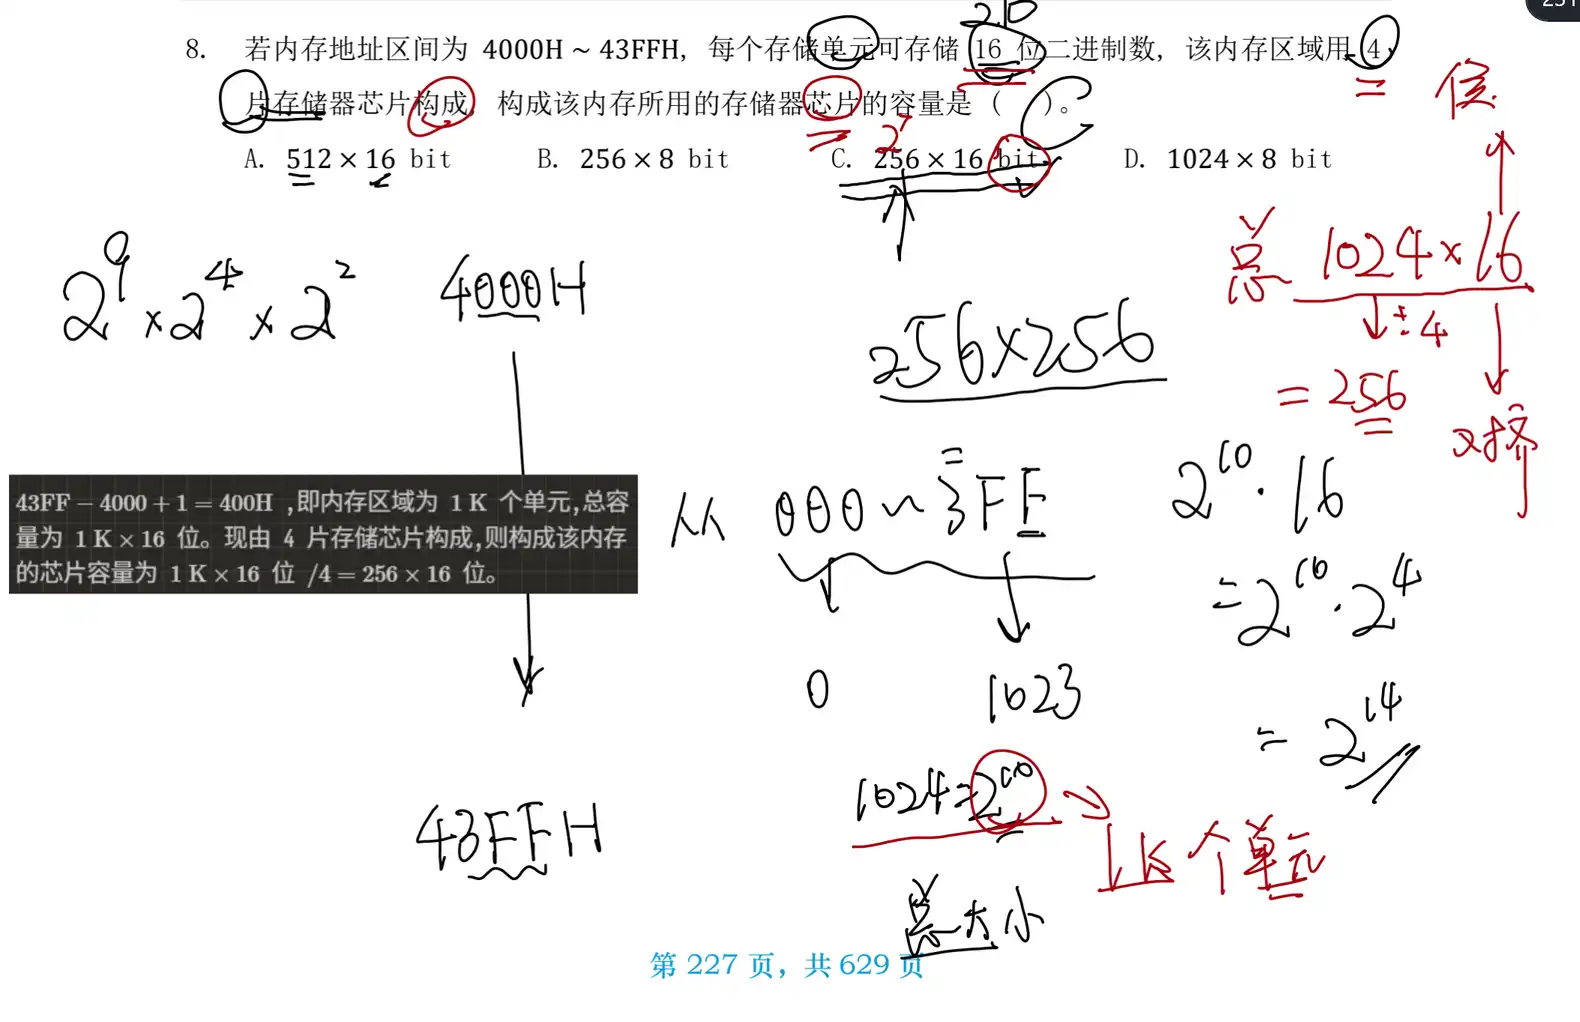 8. 若内存地址区间为 4000H ~ 43FFH, 每个存储单元可存储 16 位二进制数, 该内存区域用 4
片存储器芯片构成, 构成该内存所用的存储器芯片的容量是 ( )。
A. 512 × 16 bit B. 256 × 8 bit C. 256 × 16 bit D. 1024 × 8 bit
C
2^9 × 2^4 × 2^2
4000H
43FFH
43FF − 4000 + 1 = 400H ,即内存区域为 1 K 个单元,总容
量为 1 K × 16 位。现由 4 片存储芯片构成,则构成该内存
的芯片容量为 1 K × 16 位 /4 = 256 × 16 位。
256×256
从 000 ~ 3FF
0 1023
1024=2^10
1K个单元
总大小
总 1024×16
÷4
= 256
2^10 · 16
= 2^10 · 2^4
= 2^14
第 227 页, 共 629 页